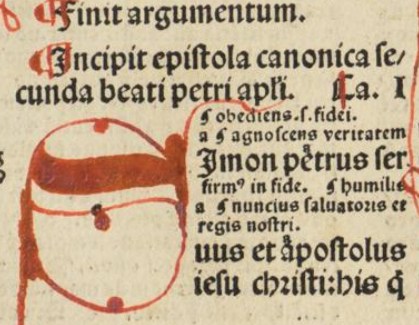 ¶ Finit argumentum.
¶ Incipit epiſtola canonica ſe/
cunda beati petri apłi. Ca. I
¶ obediens .ſ. fidei.
a ¶ agnoſcens veritatem
Simon petrus ſer
firmꝰ in fide. ¶ humilis
a ¶ nuncius ſaluatoris et
regis noſtri.
uus et apoſtolus
ieſu chriſti: his q̄